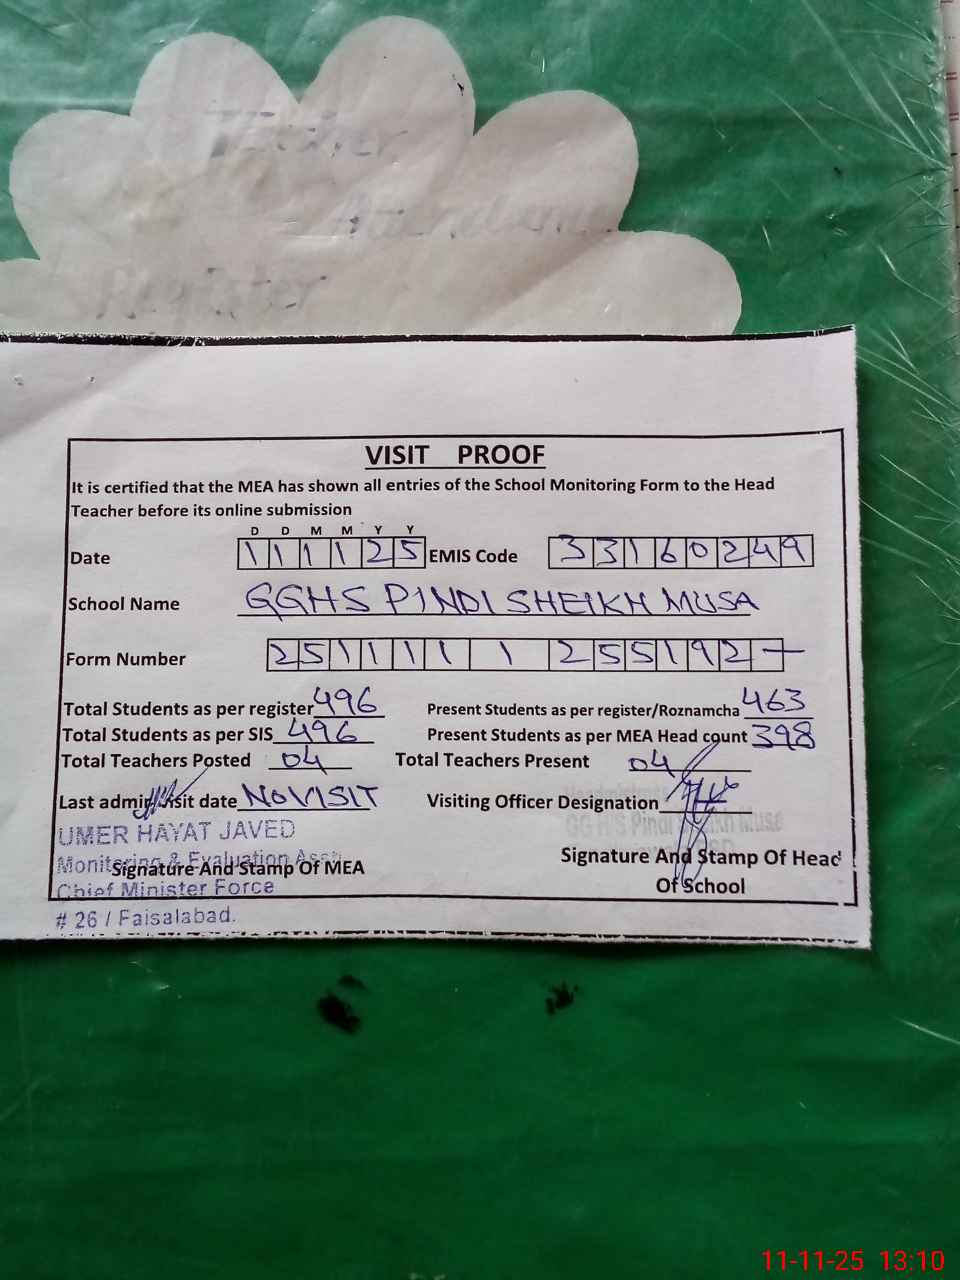 VISIT PROOF
It is certified that the MEA has shown all entries of the School Monitoring Form to the Head
Teacher before its online submission
D D M M Y Y
Date 111125 EMIS Code 33160249
School Name GGHS PINDI SHEIKH MUSA
Form Number 251111 1 255192-
Total Students as per register 496 Present Students as per register/Roznamcha 463
Total Students as per SIS 496 Present Students as per MEA Head count 398
Total Teachers Posted 04 Total Teachers Present 04
Last admin visit date NOVISIT Visiting Officer Designation
GGH'S Pindi Sheikh Musa
UMER HAYAT JAVED
Monitoring & Evaluation
Signature And Stamp Of MEA Signature And Stamp Of Head
Of School
Chief Minister Force
# 26 / Faisalabad.
11-11-25 13:10